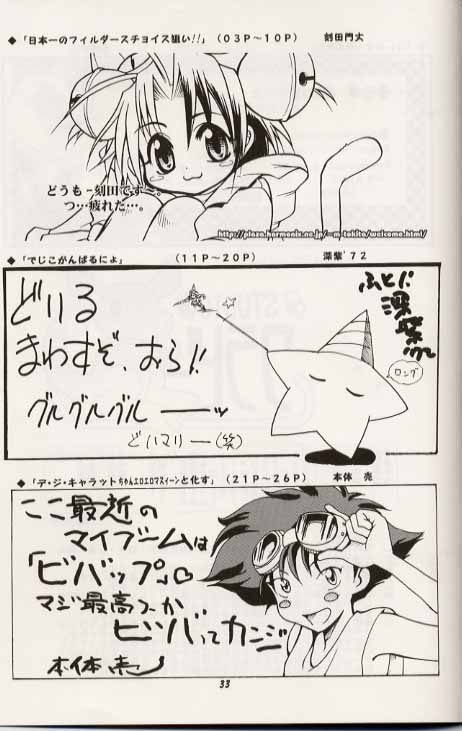 ◆「日本一のフィルダースチョイス狙い!!」(03P～10P) 刻田門大
どうも～刻田です～。
つ…疲れた…。
http://plaza.harmonix.ne.jp/~m-tokita/welcome.html/
◆「でじこがんばるにょ」 (11P～20P) 深紫'72
どりる
まわすぞ、おら!!
グルグルグルーーッ
どハマリー(笑)
ふとじ
深紫'72
ロング
◆「デ・ジ・キャラットちゃんエロエロマスィーンと化す」(21P～26P) 本体 売
ここ最近の
マイブームは
「ビバップ」♡
マジ最高つーか
ビッバってカンジ
本体売
33